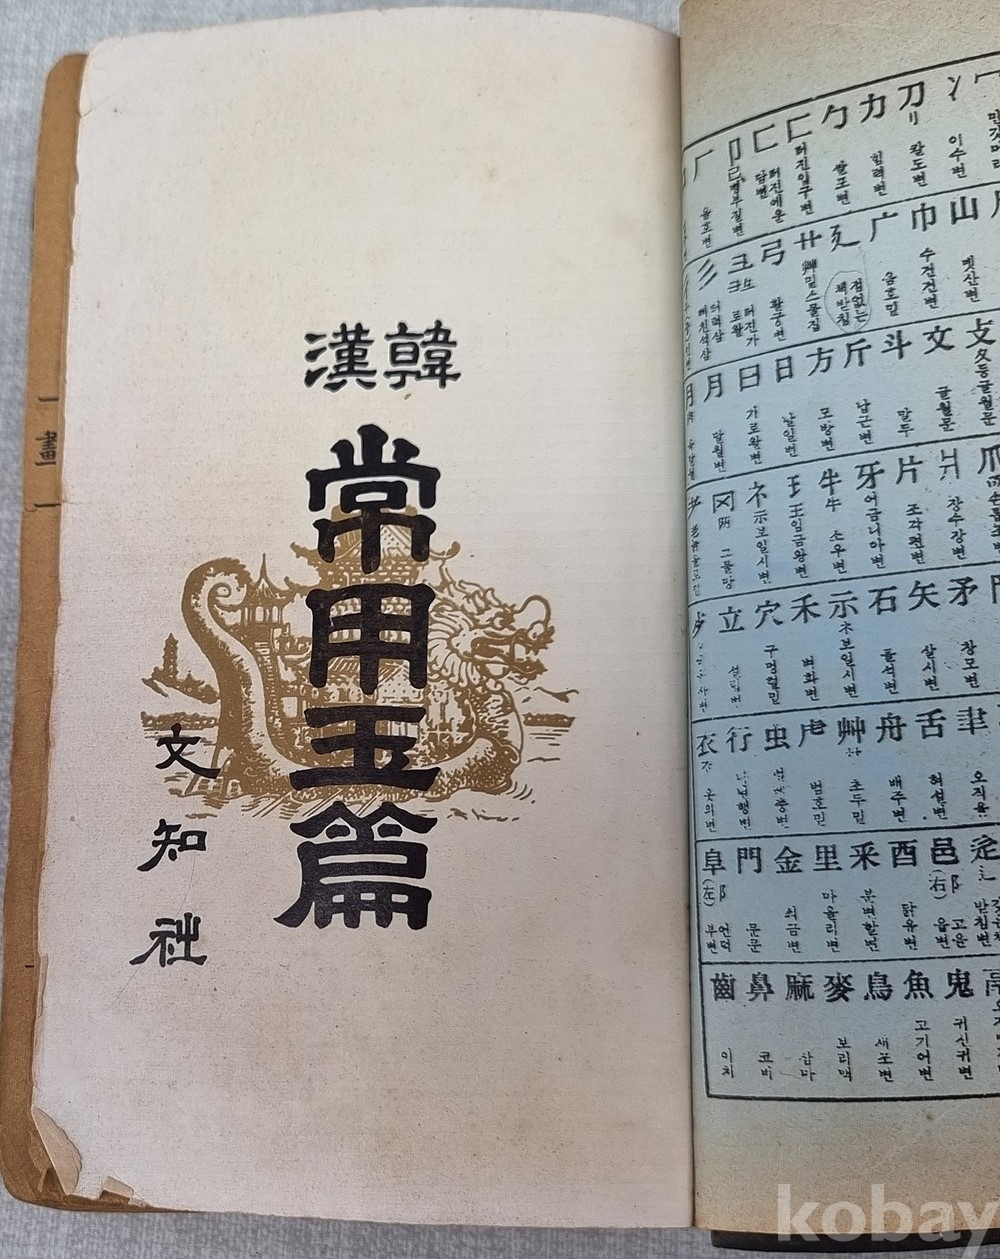 韓漢
常用玉篇
文知社
一畫一
冫 이수변
刀 刂 칼도변
力 힘력변
勹 쌀포변
匚 터진입구변
匸 터진에운담변
卩 㔾 병부절변
厂 음호변
山 멧산변
巾 수건건변
广 음호밑
廴 점없는책받침
廾 스물입
弓 활궁변
彐 彑 터진가로왈
彡 터럭삼 삐친석삼
攴 攵 등글월문
文 글월문
斗 말두
斤 날근변
方 모방변
日 날일변
曰 가로왈변
月 달월변
爿 장수장변
片 조각편변
牙 어금니아변
牛 牜 소우변
王 임금왕변
礻 示 보일시변
그물망
矛 창모변
矢 살시변
石 돌석변
示 礻 보일시변
禾 벼화변
穴 구멍혈밑
立 설립변
聿 오직율
舌 혀설변
舟 배주변
艸 초두밑
虍 범호밑
虫
行
衣 옷의변
辵 辶 받침변
邑 (右) 阝 고을읍변
酉 닭유변
釆 분변할변
里 마을리변
金 쇠금변
門 문문
阜 (左) 阝 언덕부변
鬼 귀신귀변
魚 고기어변
鳥 새조변
麥 보리맥
麻 삼마
鼻 코비
齒 이치
kobay